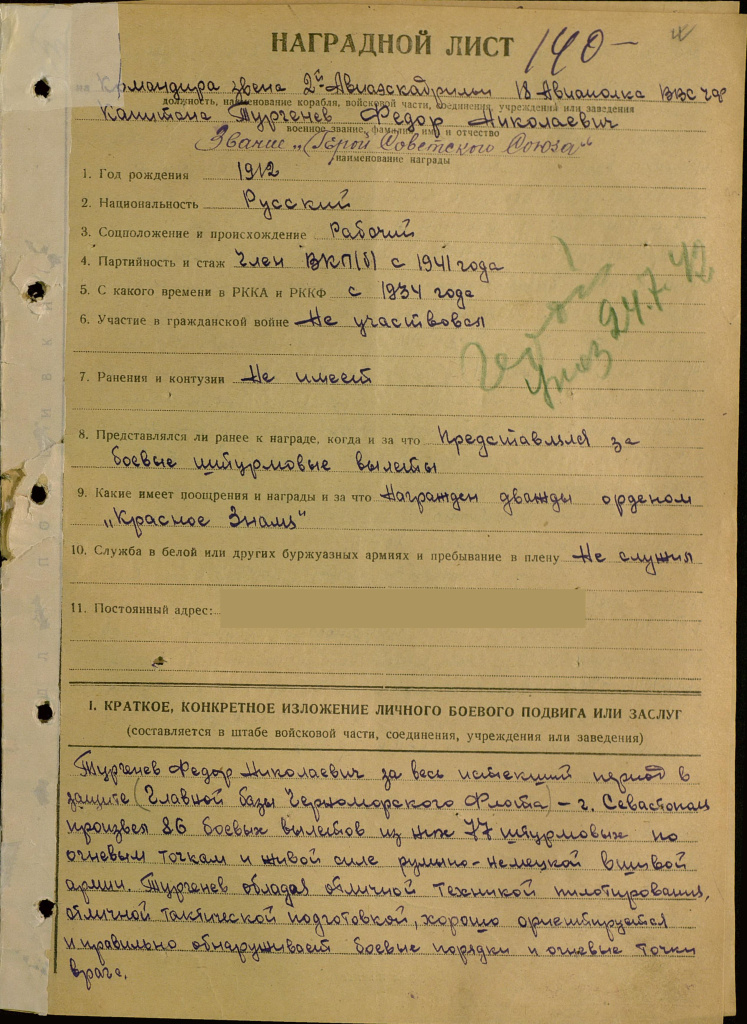 НАГРАДНОЙ ЛИСТ 140-
на Командира звена 2й Авиаэскадрильи 18 Авиаполка ВВС ЧФ
должность, наименование корабля, войсковой части, соединения, учреждения или заведения
Капитана Тургенев Федор Николаевич
военное звание, фамилия, имя и отчество
Звание „(Герой Советского Союза“
наименование награды
1. Год рождения 1912
2. Национальность Русский
3. Соцположение и происхождение Рабочий
4. Партийность и стаж Член ВКП(б) с 1941 года
5. С какого времени в РККА и РККФ с 1934 года
6. Участие в гражданской войне Не участвовал
Герой
Указ 24.7.42
7. Ранения и контузии Не имеет
8. Представлялся ли ранее к награде, когда и за что Представлялся за
боевые штурмовые вылеты
9. Какие имеет поощрения и награды и за что Награжден дважды орденом
„Красное Знамя“
10. Служба в белой или других буржуазных армиях и пребывание в плену Не служил
11. Постоянный адрес:
I. КРАТКОЕ, КОНКРЕТНОЕ ИЗЛОЖЕНИЕ ЛИЧНОГО БОЕВОГО ПОДВИГА ИЛИ ЗАСЛУГ
(составляется в штабе войсковой части, соединения, учреждения или заведения)
Тургенев Федор Николаевич за весь истекший период в
защите (Главной базы Черноморского Флота) – г. Севастополь
произвел 86 боевых вылетов из них 77 штурмовых по
огневым точкам и живой силе румыно-немецкой вшивой
армии. Тургенев обладая отличной техникой пилотирования,
отличной тактической подготовкой, хорошо ориентируется
и правильно обнаруживает боевые порядки и огневые точки
врага.